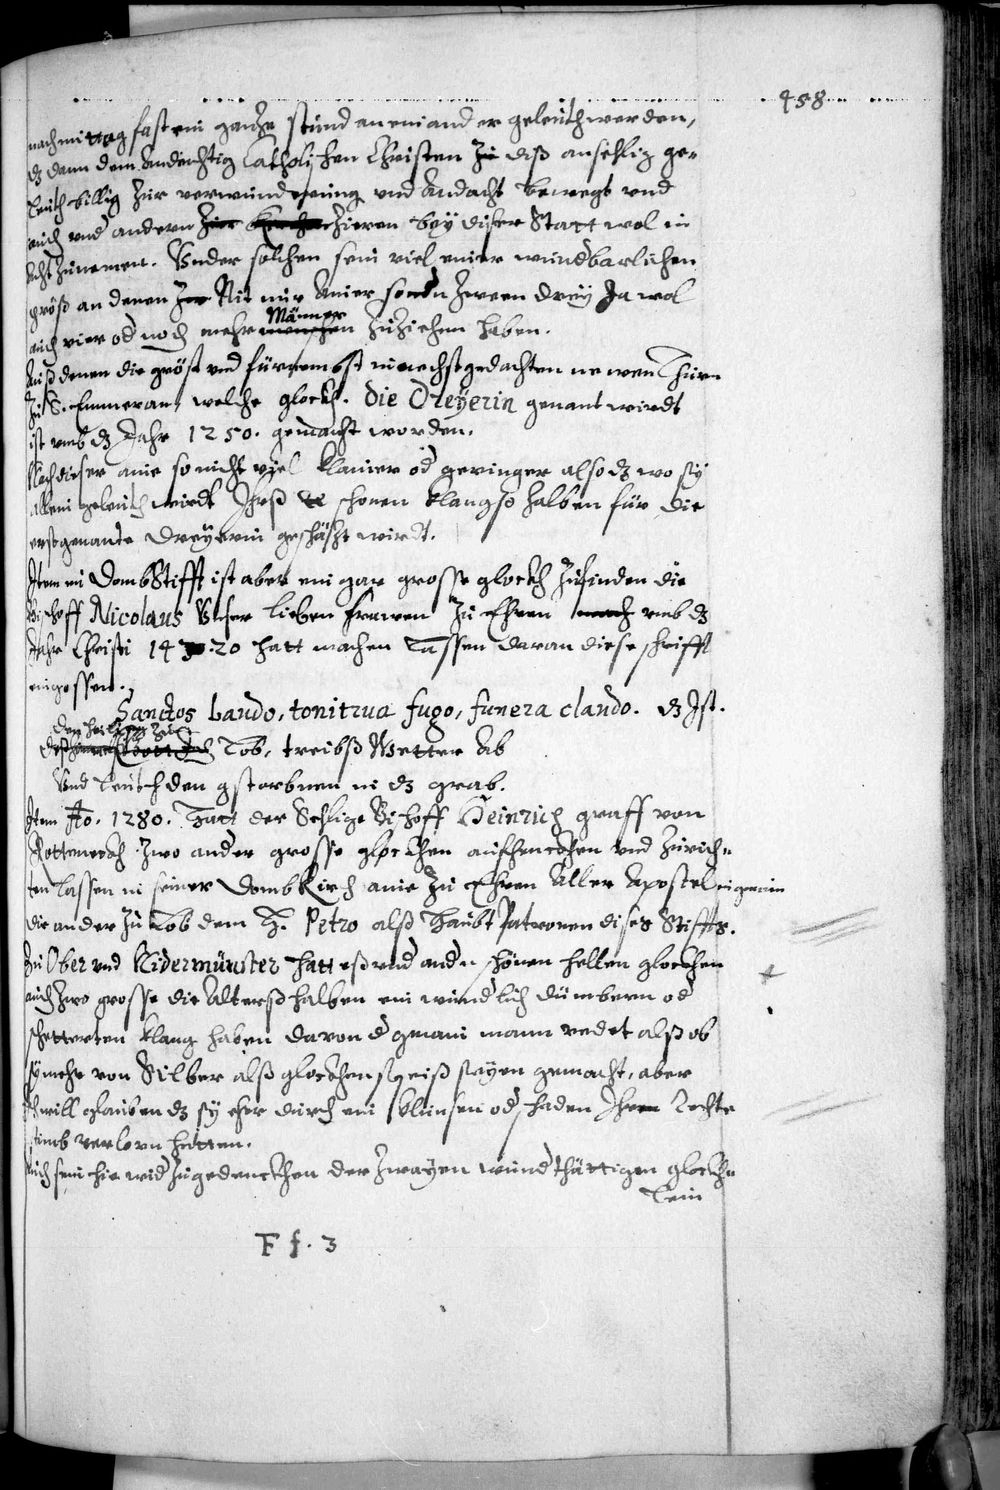 458
nachmittag fast ein gantze stund aneinander geleuth werden,
dz dann dem Andechtig Catholischen Christen zu diß ansehlig ge-
leuth billig zur verwunderung vnd Andacht bewegt vnd
auch vnd andern zieren bey diser Statt wol in
acht zunemen. Vnder solchen sein viel einer wundbarlichen
größ an denen Nit nur Ainer sondn zween drey Ja wol
auch vier od noch mehr Männer zuziehen haben.
Auß denen die gröst vnd fürnembst in nechstgedachten newen Thurn
zu S. Emmeran, welche glockh. die Dreyerin genant wirdt
ist vmb dz Jahr 1250. gemacht worden.
Nach dieser aine so nicht vjel klainer od geringer also dz wo sy
allein geleuth wirdt Ihrß schonen klangß halben für die
erstgenante dreyerin geschätzt wirdt.
Item in DombStifft ist aber ein gar grosse glockh zufinden die
Bischoff Nicolaus Vnser lieben frawen zu Ehren vmb dz
Jahr Christi 1420 hatt machen Lassen daran diese schrifft
eingossen.
Sanctos Laudo, tonitrua fugo, funera claudo. dz Ist.
Den heiligen zu
Lob, treibß Wetter Ab
Vnd leuth den gstorbnen in dz grab.
Item Ao. 1280. Hatt der Sehlige Bischoff Heinrich graff von
Rotteneckh zwo ander grosse glockhen aufhenckhen vnd zurich-
ten Lassen in seiner DombKirch aine zu Ehren Aller Apostel in gemein
die ander zu Lob dem H. Petro alß Haubt Patronen dises Stiffts.
Zu Ober vnd Nidermünster hatt eß vnd andn schönen hellen glockhen
auch zwo grosse die Alterßhalben ein wundlich dumbern od
schetterten klang haben davon d gmain mann redet alß ob
sy mehr von Silber alß glockhenspeiß seyen gemacht, aber
Ich will glauben dz sy eher durch ein klunsen od schaden Ihre rechte
stimb verlorn hetten.
Auch sein hie wid zugedenckhen der zwayen wundthättigen glöckh-
lein
Ff. 3